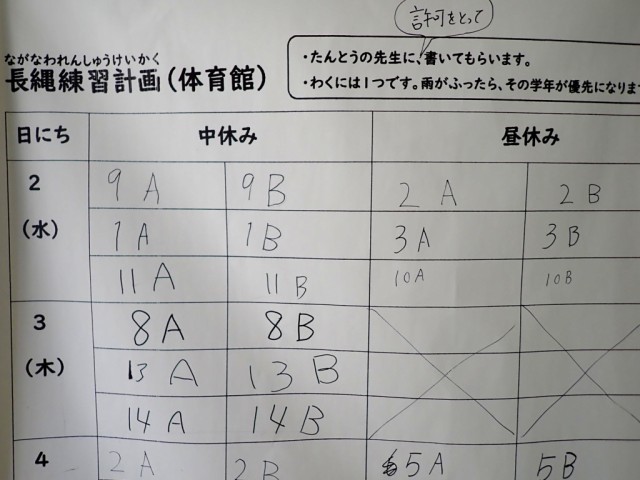 許可をとって
ながなわれんしゅうけいかく
長縄練習計画(体育館)
・たんとうの先生に、書いてもらいます。
・わくには1つです。雨がふったら、その学年が優先になりま
日にち 中休み 昼休み
2 9A 9B 2A 2B
(水) 1A 1B 3A 3B
11A 11B 10A 10B
3 8A 8B
(木) 13A 13B
14A 14B
4 2A 2B 5A 5B